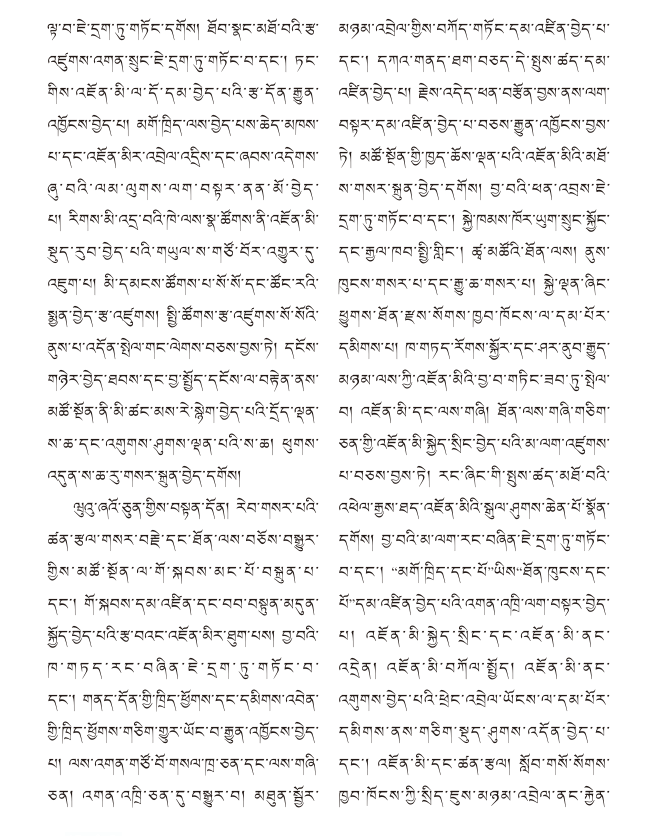 ལྟ་བ་ཇེ་དྲག་ཏུ་གཏོང་དགོས། ཐོབ་སྣང་མཐོ་བའི་རྩ་
འཛུགས་འགན་སྲུང་ཇེ་དྲག་ཏུ་གཏོང་བ་དང་། ཏང་
གིས་འཛོན་མི་ལ་དོ་དམ་བྱེད་པའི་རྩ་དོན་རྒྱུན་
འཁྱོངས་བྱེད་པ། མགོ་ཁྲིད་ལས་བྱེད་པས་ཆེད་མཁས་
པ་དང་འཛོན་མིར་འབྲེལ་འདྲིས་དང་ཞབས་འདེགས་
ཞུ་བའི་ལམ་ལུགས་ལག་བསྟར་ནན་མོ་བྱེད་
པ། རིགས་མི་འདྲ་བའི་ཁེ་ལས་སྣ་ཚོགས་ནི་འཛོན་མི་
སྡུད་རུབ་བྱེད་པའི་གཡུལ་ས་གཙོ་བོར་འགྱུར་དུ་
འཇུག་པ། མི་དམངས་ཚོགས་པ་སོ་སོ་དང་ཚོང་རའི་
སྨྱན་བྱེད་རྩ་འཛུགས། སྤྱི་ཚོགས་རྩ་འཛུགས་སོ་སོའི་
ནུས་པ་འདོན་སྤེལ་གང་ལེགས་བཅས་བྱས་ཏེ། དངོས་
གཉེར་བྱེད་ཐབས་དང་བྱ་སྤྱོད་དངོས་ལ་བརྟེན་ནས་
མཚོ་སྔོན་ནི་མི་ཚང་མས་རེ་སྙེག་བྱེད་པའི་དྲོད་ལྡན་
ས་ཆ་དང་འགུགས་ཤུགས་ལྡན་པའི་ས་ཆ། ཕུགས་
འདུན་ས་ཆ་རུ་གསར་སྐྲུན་བྱེད་དགོས།
ཝུའུ་ཞའོ་ཅུན་གྱིས་བསྟན་དོན། རེབ་གསར་པའི་
ཚན་རྩལ་གསར་བརྗེ་དང་ཐོན་ལས་བཅོས་བསྒྱུར་
གྱིས་མཚོ་སྔོན་ལ་གོ་སྐབས་མང་པོ་བསྐྲུན་པ་
དང་། གོ་སྐབས་དམ་འཛིན་དང་བབ་བསྟུན་མདུན་
སྐྱོད་བྱེད་པའི་རྩ་བའང་འཛོན་མིར་ཐུག་པས། བྱ་བའི་
ཁ་གཏད་རང་བཞིན་ཇེ་དྲག་ཏུ་གཏོང་བ་
དང་། གནད་དོན་གྱི་ཁྲིད་ཕྱོགས་དང་དམིགས་འབེན་
གྱི་ཁྲིད་ཕྱོགས་གཅིག་གྱུར་ཡོང་བ་རྒྱུན་འཁྱོངས་བྱེད་
པ། ལས་འགན་གཙོ་བོ་གསལ་ཁྲ་ཅན་དང་ལས་གཞི་
ཅན། འགན་འཁྲི་ཅན་དུ་བསྒྱུར་བ། མཐུན་སྦྱོར་
མཉམ་འབྲེལ་གྱིས་བཀོད་གཏོང་དམ་འཛིན་བྱེད་པ་
དང་། དཀའ་གནད་ཐག་བཅད་དེ་སྤུས་ཚད་དམ་
འཛིན་བྱེད་པ། རྗེས་འདེད་ཕན་བརྩོན་བྱས་ནས་ལག་
བསྟར་དམ་འཛིན་བྱེད་པ་བཅས་རྒྱུན་འཁྱོངས་བྱས་
ཏེ། མཚོ་སྔོན་གྱི་ཁྱད་ཆོས་ལྡན་པའི་འཛོན་མིའི་མཐོ་
ས་གསར་སྐྲུན་བྱེད་དགོས། བྱ་བའི་ཕན་འབྲས་ཇེ་
དྲག་ཏུ་གཏོང་བ་དང་། སྐྱེ་ཁམས་ཁོར་ཡུག་སྲུང་སྐྱོང་
དང་རྒྱལ་ཁབ་སྤྱི་གླིང་། ཚྭ་མཚོའི་ཐོན་ལས། ནུས་
ཁུངས་གསར་པ་དང་རྒྱུ་ཆ་གསར་པ། སྐྱེ་ལྡན་ཞིང་
ཕྱུགས་ཐོན་རྫས་སོགས་ཁྱབ་ཁོངས་ལ་དམ་པོར་
དམིགས་པ། ཁ་གཏད་རོགས་སྐྱོར་དང་ཤར་ནུབ་རྒྱུད་
མཉམ་ལས་ཀྱི་འཛོན་མིའི་བྱ་བ་གཏིང་ཟབ་ཏུ་སྤེལ་
བ། འཛོན་མི་དང་ལས་གཞི། ཐོན་ལས་གཞི་གཅིག་
ཅན་གྱི་འཛོན་མི་སྐྱེད་སྲིང་བྱེད་པའི་མ་ལག་འཛུགས་
པ་བཅས་བྱས་ཏེ། རང་ཞིང་གི་སྤུས་ཚད་མཐོ་བའི་
འཕེལ་རྒྱས་ཐད་འཛོན་མིའི་སྐུལ་ཤུགས་ཆེན་པོ་སྣོན་
དགོས། བྱ་བའི་མ་ལག་རང་བཞིན་ཇེ་དྲག་ཏུ་གཏོང་
བ་དང་། “མགོ་ཁྲིད་དང་པོ”ཡིས“ཐོན་ཁུངས་དང་
པོ”དམ་འཛིན་བྱེད་པའི་འགན་འཁྲི་ལག་བསྟར་བྱེད་
པ། འཛོན་མི་སྐྱེད་སྲིང་དང་འཛོན་མི་ནང་
འདྲེན། འཛོན་མི་བཀོལ་སྤྱོད། འཛོན་མི་ནང་
འགུགས་བྱེད་པའི་ཕྲེང་འབྲེལ་ཡོངས་ལ་དམ་པོར་
དམིགས་ནས་གཅིག་སྡུད་ཤུགས་འདོན་བྱེད་པ་
དང་། འཛོན་མི་དང་ཚན་རྩལ། སློབ་གསོ་སོགས་
ཁྱབ་ཁོངས་ཀྱི་སྲིད་ཇུས་མཉམ་འབྲེལ་ནང་རྐྱེན་